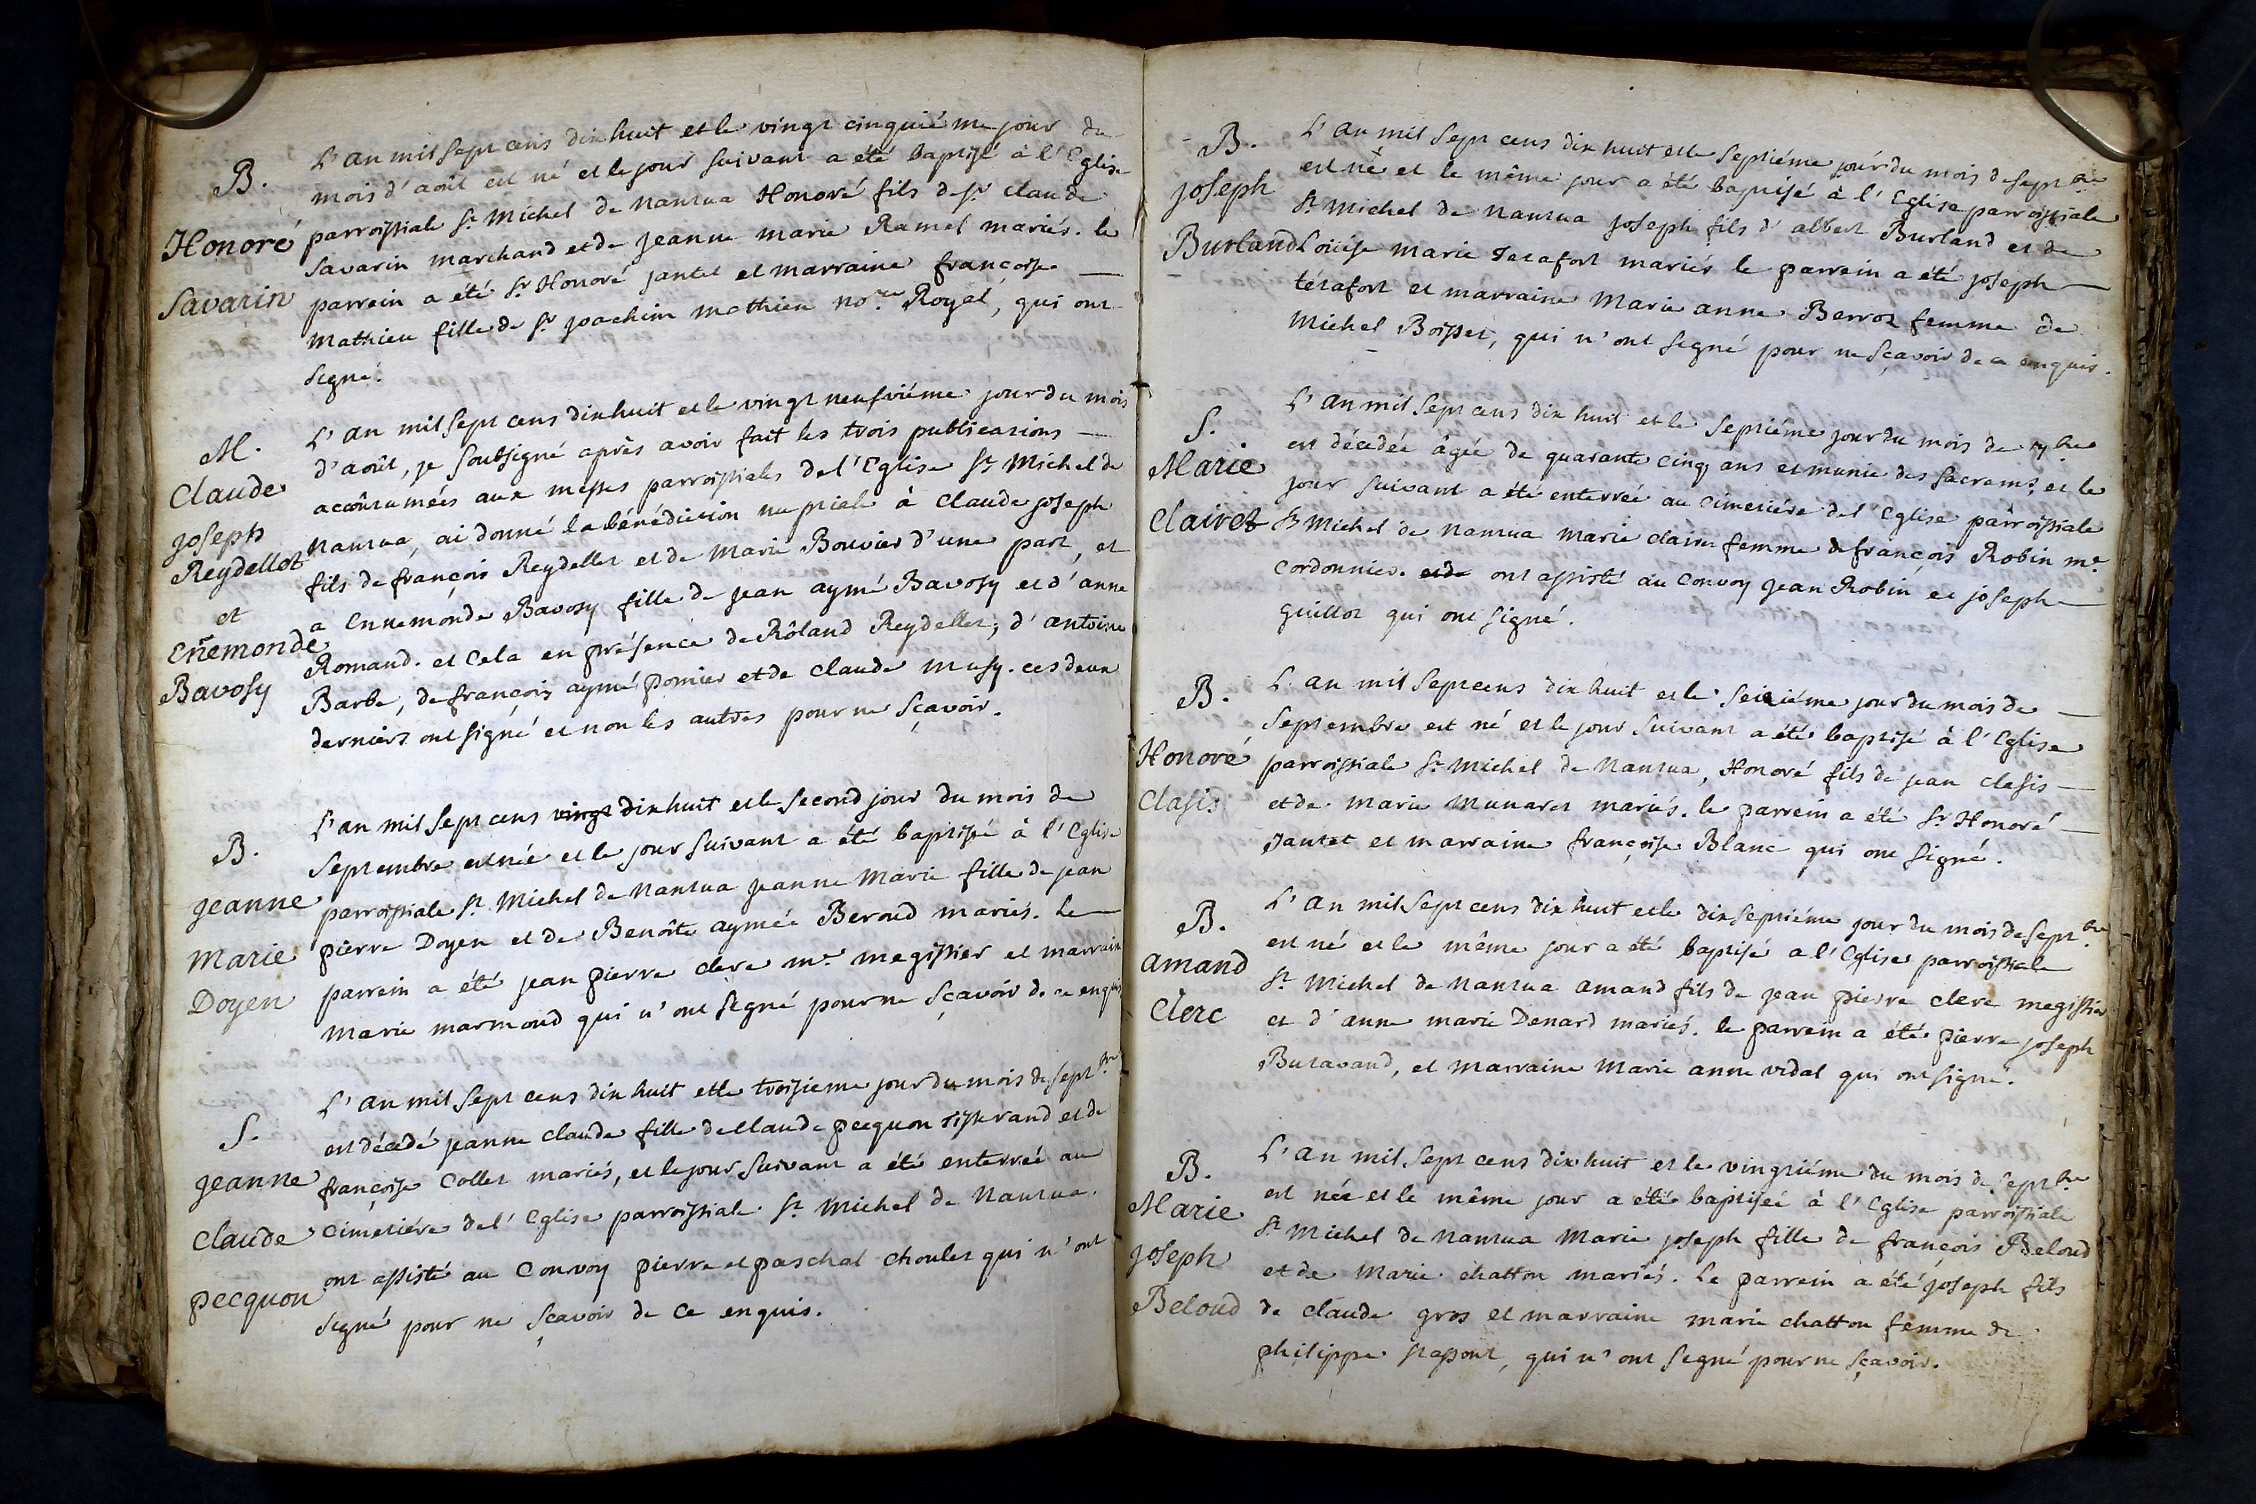 B.
Honoré
Savarin
L'an mil sept cens dix huit et le vingt cinquiéme jour du
mois d'août est né et le jour suivant a été baptisé à l'Eglise
parroissiale St Michel de nantua Honoré fils de sr claude
Savarin marchand et de jeanne marie Ramel mariés. le
parrein a été sr Honoré jantet et marraine françoise —
Mathieu fille de sr joachim mathieu nore Royal, qui ont
signé.
M.
Claude
joseph
Reydellet
et
Eñemonde
Bavosy
L'an mil sept cens dix huit et le vingt neufviéme jour du mois
d'août, je soubsigné après avoir fait les trois publications —
acoûtumées aux messes parroissiales de l'Eglise St Michel de
nantua, ai donné la bénédiction nuptiale à claude joseph
fils de françois Reydellet et de Marie Bouvier d'une part, et
a Ennemonde Bavosy fille de jean aymé Bavosy et d'anne
Romand. et cela en présence de Rôland Reydellet, d'antoine
Barbe, de françois aymé pomier et de claude musy. ces deux
derniers ont signé et non les autres pour ne sçavoir.
B.
jeanne
Marie
Doyen
L'an mil sept cens vingt dix huit et le second jour du mois de
Septembre est née et le jour suivant a été baptisée à l'Eglise
parroissiale St Michel de nantua jeanne Marie fille de jean
pierre Doyen et de Benoîte aymée Beroud mariés. Le
parrein a été jean pierre clerc me megissier et marraine
marie marmond qui n'ont signé pour ne sçavoir de ce enquis
S.
jeanne
claude
pecquon
L'an mil sept cens dix huit et le troisieme jour du mois de septbre
est décédé jeanne claude fille de claude pecquon tisserand et de
françoise Collet mariés, et le jour suivant a été enterrée au
cimetiére de l'Eglise parroissiale St Michel de Nantua.
ont assisté au convoy pierre et paschal choulet qui n'ont
signé pour ne sçavoir de ce enquis.
B.
joseph
Burland
L'an mil sept cens dix huit et le septiéme jour du mois de septbre
est né et le même jour a été baptisé à l'Eglise parroissiale
St Michel de nantua joseph fils d'albert Burland et de
Loüise marie terafort mariés le parrein a été joseph —
térafort et marraine Marie anne Berrot femme de
Michel Boisset, qui n'ont signé pour ne sçavoir de ce enquis.
S.
Marie
Clairet
L'an mil sept cens dix huit et le septiéme jour du mois de 7bre
est décedée âgée de quarante cinq ans et munie des sacremts, et le
jour suivant a été enterrée au cimetiére de l'Eglise parroissiale
St Michel de nantua marie claire femme de françois Robin me
cordonnier. et de ont assisté au convoy jean Robin et joseph —
guillot qui ont signé.
B.
Honoré
Clasis
L'an mil sept cens dix huit et le seiziéme jour du mois de —
Septembre est né et le jour suivant a été baptisé à l'Eglise
parroissiale St Michel de nantua, Honoré fils de jean clasis —
et de marie Munaret mariés. le parrein a été sr Honoré —
jantet et marraine françoise Blanc qui ont signé.
B.
amand
Clerc
L'an mil sept cens dix huit et le dix septiéme jour du mois de septbre
est né et le même jour a été baptisé a l'Eglise parroissiale
St Michel de nantua amand fils de jean pierre clerc megissier
et d'anne marie Denard mariés. le parrein a été pierre joseph
Butavand, et marraine Marie anne vidal qui ont signé.
B.
Marie
joseph
Beloud
L'an mil sept cens dix huit et le vingtiéme du mois de septbre
est née et le même jour a été baptisée à l'Eglise parroissiale
St Michel de nantua Marie joseph fille de françois Beloud
et de Marie chatton mariés. Le parrein a été joseph fils
de claude gros et marraine marie chatton femme de
philippe stapont, qui n'ont signé pour ne sçavoir.